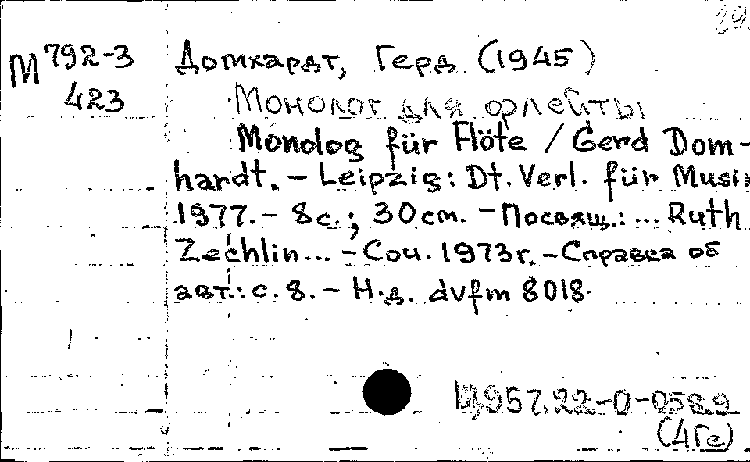 М 792-3
423
Домхардт, Герд (1945)
Монолог для флейты
Monolog für Flöte / Gerd Dom-
hardt. – Leipzig: Dt. Verl. für Musik
1977. – 8 с.; 30 см. – Посвящ.: ... Ruth
Zechlin... – Соч. 1973 г. – Справка об
авт.: с. 8. – Н.д. dvfm 8018.
(4Ге)